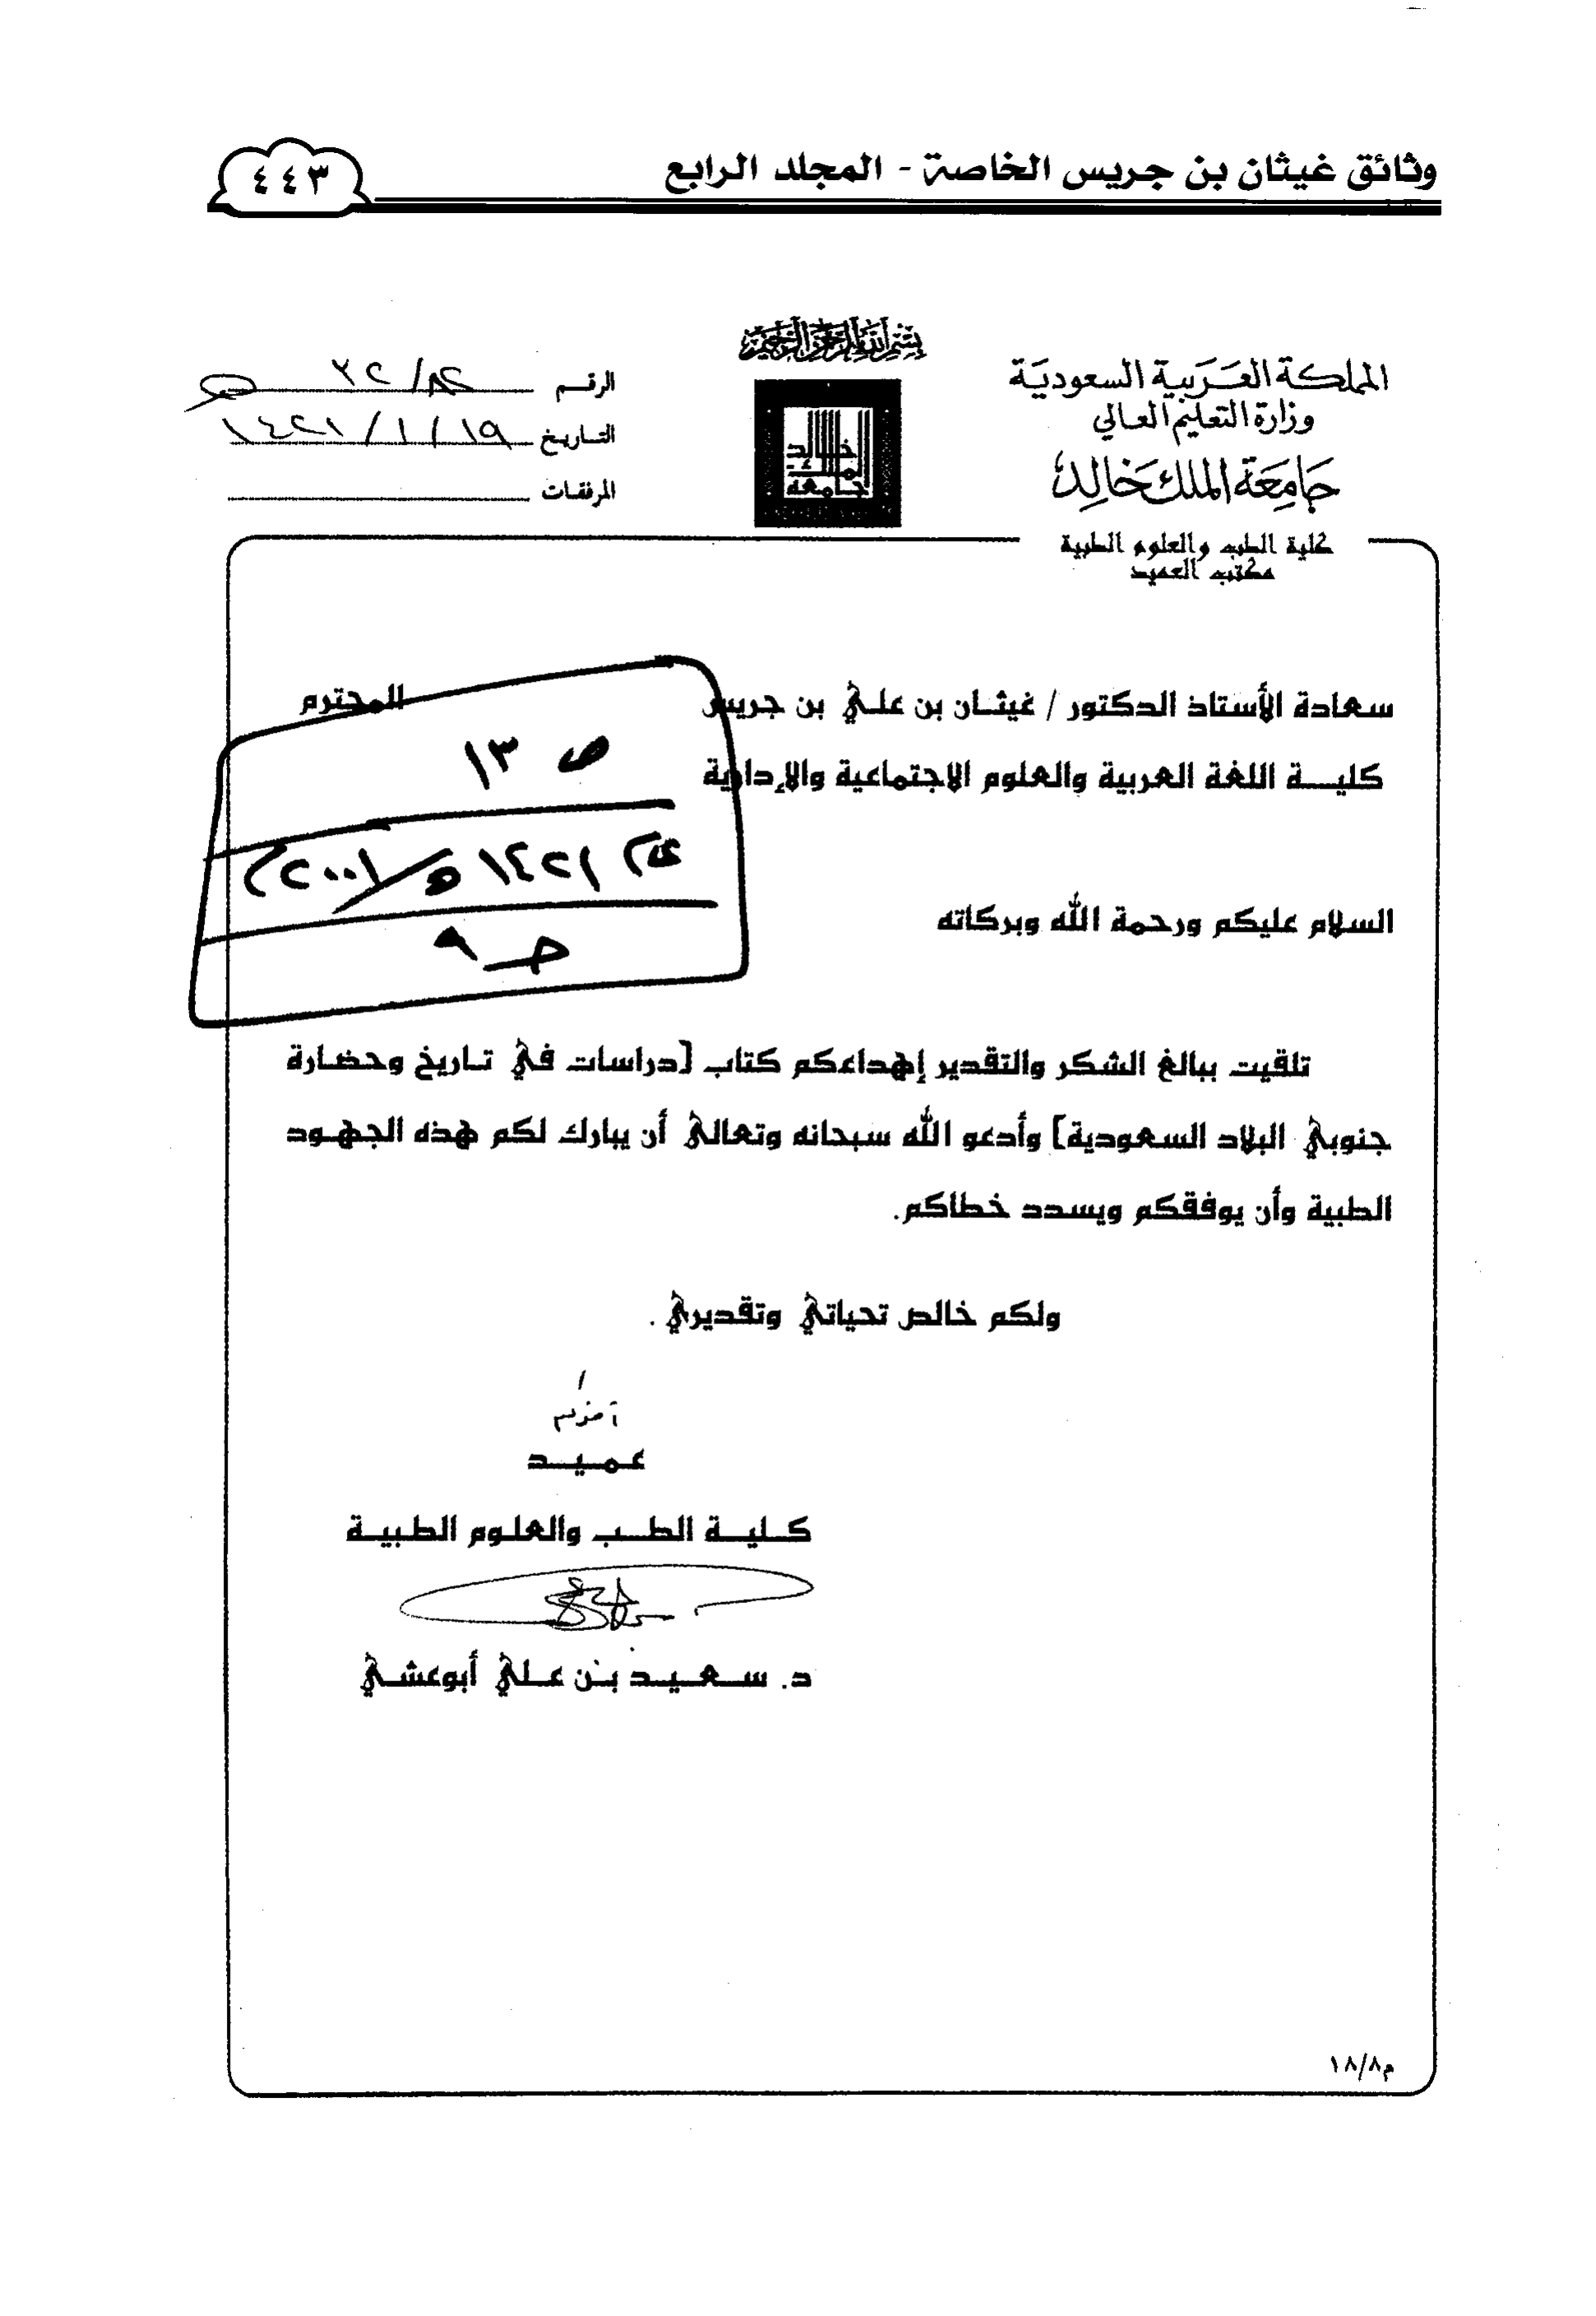 وثائق غيثان بن جريس الخاصة - المجلد الرابع
٤٤٣
بسم الله الرحمن الرحيم
المملكة العربية السعودية
وزارة التعليم العالي
جامعة الملك خالد
كلية الطب والعلوم الطبية
مكتب العميد
خالد
الملك
جامعة
الرقم
التاريخ ١٤٢١/١/١٩
المرفقات
سعادة الأستاذ الدكتور / غيثان بن علي بن جريس المحترم
كلية اللغة العربية والعلوم الاجتماعية والإدارية
ص ١٣
١٤٢١هـ/٢٠٠١
ج ٩
السلام عليكم ورحمة الله وبركاته
تلقيت ببالغ الشكر والتقدير إهداءكم كتاب [دراسات في تاريخ وحضارة
جنوبي البلاد السعودية] وأدعو الله سبحانه وتعالى أن يبارك لكم هذه الجهود
الطبية وأن يوفقكم ويسدد خطاكم.
ولكم خالص تحياتي وتقديري .
عميد
كلية الطب والعلوم الطبية
د. سعيد بن علي أبوعشي
م١٨/٨